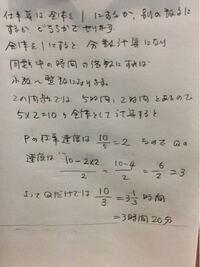 仕事算は全体を1にするか、別の数にするかどちらかでやります。
全体を1にすると分数計算になり
問題中の時間の倍数にすれば
小数か整数になります。
この問題では 5時間、2時間とあるので
5×2=10を全体として計算すると
Pの仕事速度は 10/5=2 なのでQの
速度は (10-2×2)/2 = (10-4)/2 = 6/2 = 3
よってQだけでは 10/3 = 3 1/3 時間
=3時間20分